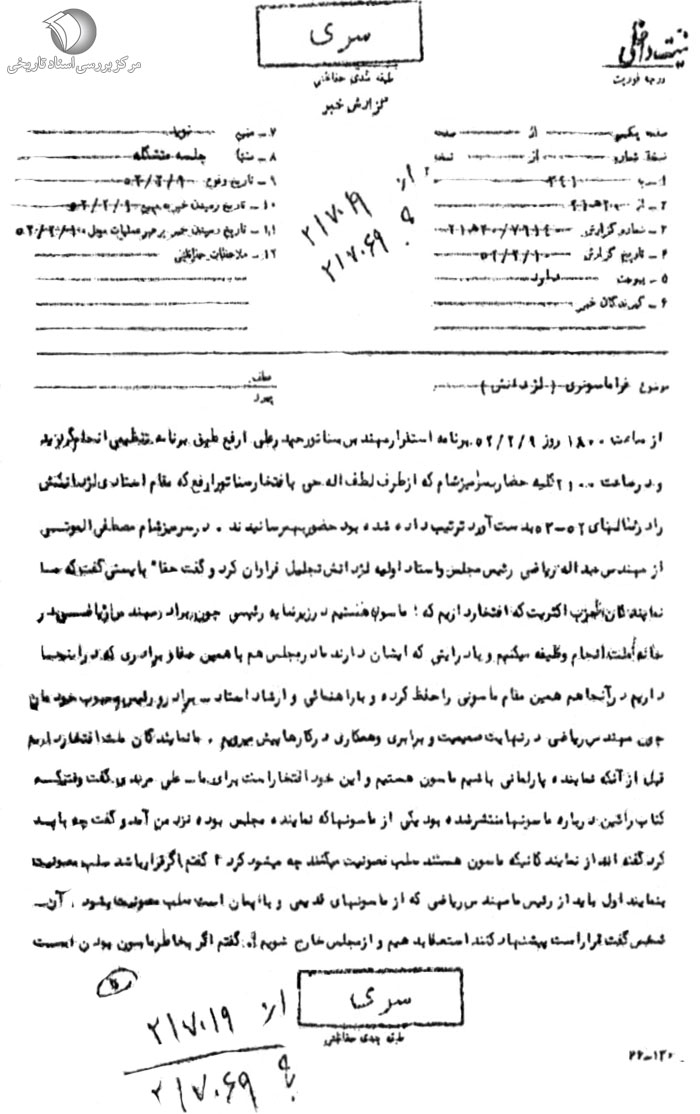 مرکز بررسی اسناد تاریخی
سری
طبقه بندی حفاظتی
گزارش خبر
درجه فوریت
صفحه یکم از صفحه
نسخه شماره از نسخه
۱ـ به ۳۴۱
۲ـ از ۲۰ ه‍ ۲۱
۳ـ شماره گزارش
۴ـ تاریخ گزارش ۵۲/۲/۱۰
۵ـ پیوست ندارد
۶ـ گیرندگان خبر
۷ـ منبع
۸ـ منشاء جلسه متشکله
۹ـ تاریخ وقوع ۵۲/۲/۹
۱۰ـ تاریخ رسیدن خبر به منبع ۵۲/۲/۹
۱۱ـ تاریخ رسیدن خبر به رهبر عملیات ۵۲/۲/۱۰
۱۲ـ ملاحظات حفاظتی
از ۲۱۷۰۱۹
به ۲۱۷۰۶۹
موضوع فراماسونری (لژ دانش)
عطف
پیرو
از ساعت ۱۸۰۰ روز ۵۲/۲/۹ برنامه استقرار مهندس سناتور حیدرعلی ارفع طبق برنامه تنظیمی انجام گردید
و در ساعت ۲۱۰۰ کلیه حضار بسر میز شام که از طرف لطف اله حی بافتخار سناتور ارفع که مقام استادی لژ دانش
را در سالهای ۵۲ـ۵۳ بدست آورد ترتیب داده شده بود حضور بهم رسانیدند . در سر میز شام مصطفی الموتی
از مهندس عبداله ریاضی رئیس مجلس و استاد اولیه لژ دانش تجلیل فراوان کرد و گفت حقا" بایستی گفت که ما
نمایندگان حزب اکثریت که افتخار داریم که ماسون هستیم در زیر سایه رئیسی چون برادر مهندس ریاضی در
خانه ملت انجام وظیفه میکنیم و با درایتی که ایشان دارند ما در مجلس هم با همین صفا و برادری که در اینجا
داریم در آنجا هم همین مقام ماسونی را حفظ کرده و با راهنمائی و ارشاد استاد ـ برادر و رئیس محبوب خودمان
چون مهندس ریاضی در نهایت صمیمیت و برابری و همکاری در کارها پیش میرویم . ما نمایندگان ملت افتخار داریم
قبل از آنکه نماینده پارلمانی باشیم ماسون هستیم و این خود افتخار است برای ما ـ علی مرندی گفت وقتیکه
کتاب رائین درباره ماسونها منتشر شده بود یکی از ماسونها که نماینده مجلس بوده نزد من آمد و گفت چه باید
کرد گفته اند از نمایندگانیکه ماسون هستند سلب مصونیت میکنند چه میشود کرد ؟ گفتم اگر قرار باشد سلب مصونیت
بنمایند اول باید از رئیس ما مهندس ریاضی که از ماسونهای قدیمی و با ایمان است سلب مصونیت بشود . آن ـ
شخص گفت قرار است پیشنهاد کنند استعفا بدهیم و از مجلس خارج شویم . گفتم اگر بخاطر ماسون بودن است
سری
طبقه بندی حفاظتی
از ۲۱۷۰۱۹
به ۲۱۷۰۶۹
۲۶ـ۱۲۰